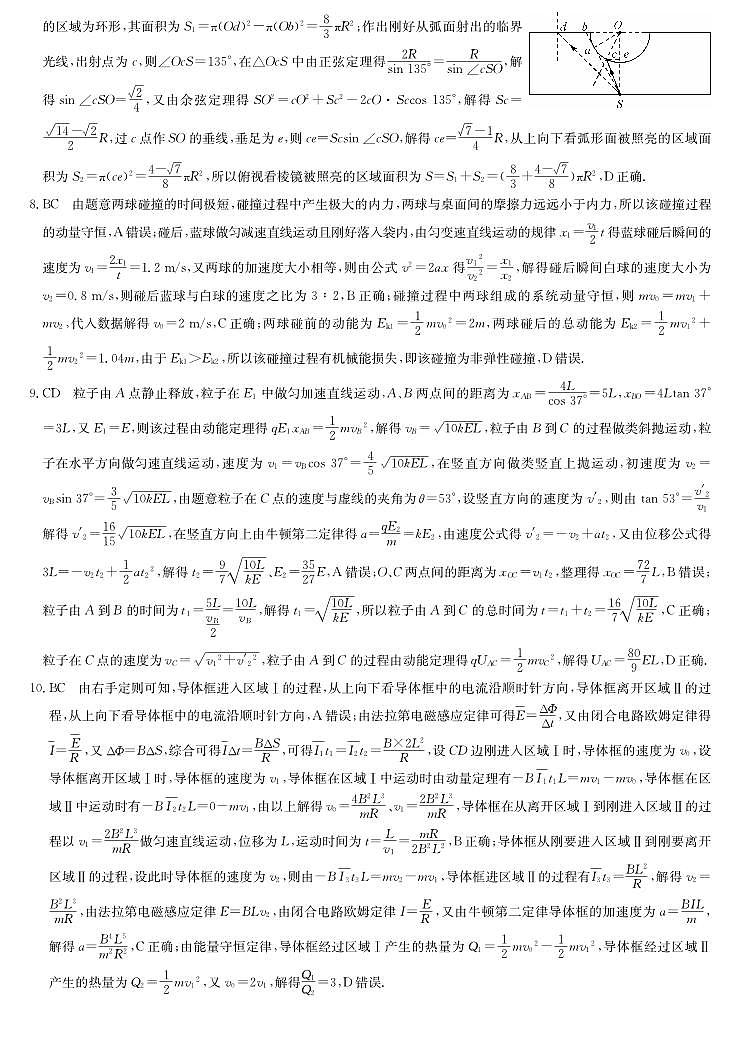 的区域为环形,其面积为 S₁=π(Od)²-π(Ob)²=8/3 πR²;作出刚好从弧面射出的临界
d b O a c e S
光线,出射点为 c,则∠OcS=135°,在△OcS 中由正弦定理得 2R/sin 135°=R/sin ∠cSO,解
得 sin ∠cSO=√2/4,又由余弦定理得 SO²=cO²+Sc²-2cO·Sccos 135°,解得 Sc=
(√14-√2)/2 R,过 c 点作 SO 的垂线,垂足为 e,则 ce=Scsin ∠cSO,解得 ce=(√7-1)/4 R,从上向下看弧形面被照亮的区域面
积为 S₂=π(ce)²=(4-√7)/8 πR²,所以俯视看棱镜被照亮的区域面积为 S=S₁+S₂=(8/3+(4-√7)/8)πR²,D 正确.
8. BC 由题意两球碰撞的时间极短,碰撞过程中产生极大的内力,两球与桌面间的摩擦力远远小于内力,所以该碰撞过程
的动量守恒,A 错误;碰后,蓝球做匀减速直线运动且刚好落入袋内,由匀变速直线运动的规律 x₁=v₁/2 t 得蓝球碰后瞬间的
速度为 v₁=2x₁/t=1.2 m/s,又两球的加速度大小相等,则由公式 v²=2ax 得 v₁²/v₂²=x₁/x₂,解得碰后瞬间白球的速度大小为
v₂=0.8 m/s,则碰后蓝球与白球的速度之比为 3∶2,B 正确;碰撞过程中两球组成的系统动量守恒,则 mv₀=mv₁+
mv₂,代入数据解得 v₀=2 m/s,C 正确;两球碰前的动能为 Eₖ₁=1/2 mv₀²=2m,两球碰后的总动能为 Eₖ₂=1/2 mv₁²+
1/2 mv₂²=1.04m,由于 Eₖ₁>Eₖ₂,所以该碰撞过程有机械能损失,即该碰撞为非弹性碰撞,D 错误.
9. CD 粒子由 A 点静止释放,粒子在 E₁ 中做匀加速直线运动,A、B 两点间的距离为 x_AB=4L/cos 37°=5L,x_BO=4Ltan 37°
=3L,又 E₁=E,则该过程由动能定理得 qE₁x_AB=1/2 mv_B²,解得 v_B=√(10kEL),粒子由 B 到 C 的过程做类斜抛运动,粒
子在水平方向做匀速直线运动,速度为 v₁=v_Bcos 37°=4/5 √(10kEL),在竖直方向做类竖直上抛运动,初速度为 v₂=
v_Bsin 37°=3/5 √(10kEL),由题意粒子在 C 点的速度与虚线的夹角为 θ=53°,设竖直方向的速度为 v′₂,则由 tan 53°=v′₂/v₁
解得 v′₂=16/15 √(10kEL),在竖直方向上由牛顿第二定律得 a=qE₂/m=kE₂,由速度公式得 v′₂=-v₂+at₂,又由位移公式得
3L=-v₂t₂+1/2 at₂²,解得 t₂=9/7 √(10L/kE)、E₂=35/27 E,A 错误;O、C 两点间的距离为 x_OC=v₁t₂,整理得 x_OC=72/7 L,B 错误;
粒子由 A 到 B 的时间为 t₁=5L/(v_B/2)=10L/v_B,解得 t₁=√(10L/kE),所以粒子由 A 到 C 的总时间为 t=t₁+t₂=16/7 √(10L/kE),C 正确;
粒子在 C 点的速度为 v_C=√(v₁²+v′₂²),粒子由 A 到 C 的过程由动能定理得 qU_AC=1/2 mv_C²,解得 U_AC=80/9 EL,D 正确.
10. BC 由右手定则可知,导体框进入区域Ⅰ的过程,从上向下看导体框中的电流沿顺时针方向,导体框离开区域Ⅱ的过
程,从上向下看导体框中的电流沿顺时针方向,A 错误;由法拉第电磁感应定律可得 E̅=ΔΦ/Δt,又由闭合电路欧姆定律得
I̅=E̅/R,又 ΔΦ=BΔS,综合可得 I̅Δt=BΔS/R,可得 I̅₁t₁=I̅₂t₂=B×2L²/R,设 CD 边刚进入区域Ⅰ时,导体框的速度为 v₀,设
导体框离开区域Ⅰ时,导体框的速度为 v₁,导体框在区域Ⅰ中运动时由动量定理有-BI̅₁t₁L=mv₁-mv₀,导体框在区
域Ⅱ中运动时有-BI̅₂t₂L=0-mv₁,由以上解得 v₀=4B²L³/mR、v₁=2B²L³/mR,导体框在从离开区域Ⅰ到刚进入区域Ⅱ的过
程以 v₁=2B²L³/mR 做匀速直线运动,位移为 L,运动时间为 t=L/v₁=mR/2B²L²,B 正确;导体框从刚要进入区域Ⅱ到刚要离开
区域Ⅱ的过程,设此时导体框的速度为 v₂,则由-BI̅₃t₃L=mv₂-mv₁,导体框进区域Ⅱ的过程有 I̅₃t₃=BL²/R,解得 v₂=
B²L³/mR,由法拉第电磁感应定律 E=BLv₂,由闭合电路欧姆定律 I=E/R,又由牛顿第二定律导体框的加速度为 a=BIL/m,
解得 a=B⁴L⁵/m²R²,C 正确;由能量守恒定律,导体框经过区域Ⅰ产生的热量为 Q₁=1/2 mv₀²-1/2 mv₁²,导体框经过区域Ⅱ
产生的热量为 Q₂=1/2 mv₁²,又 v₀=2v₁,解得 Q₁/Q₂=3,D 错误.